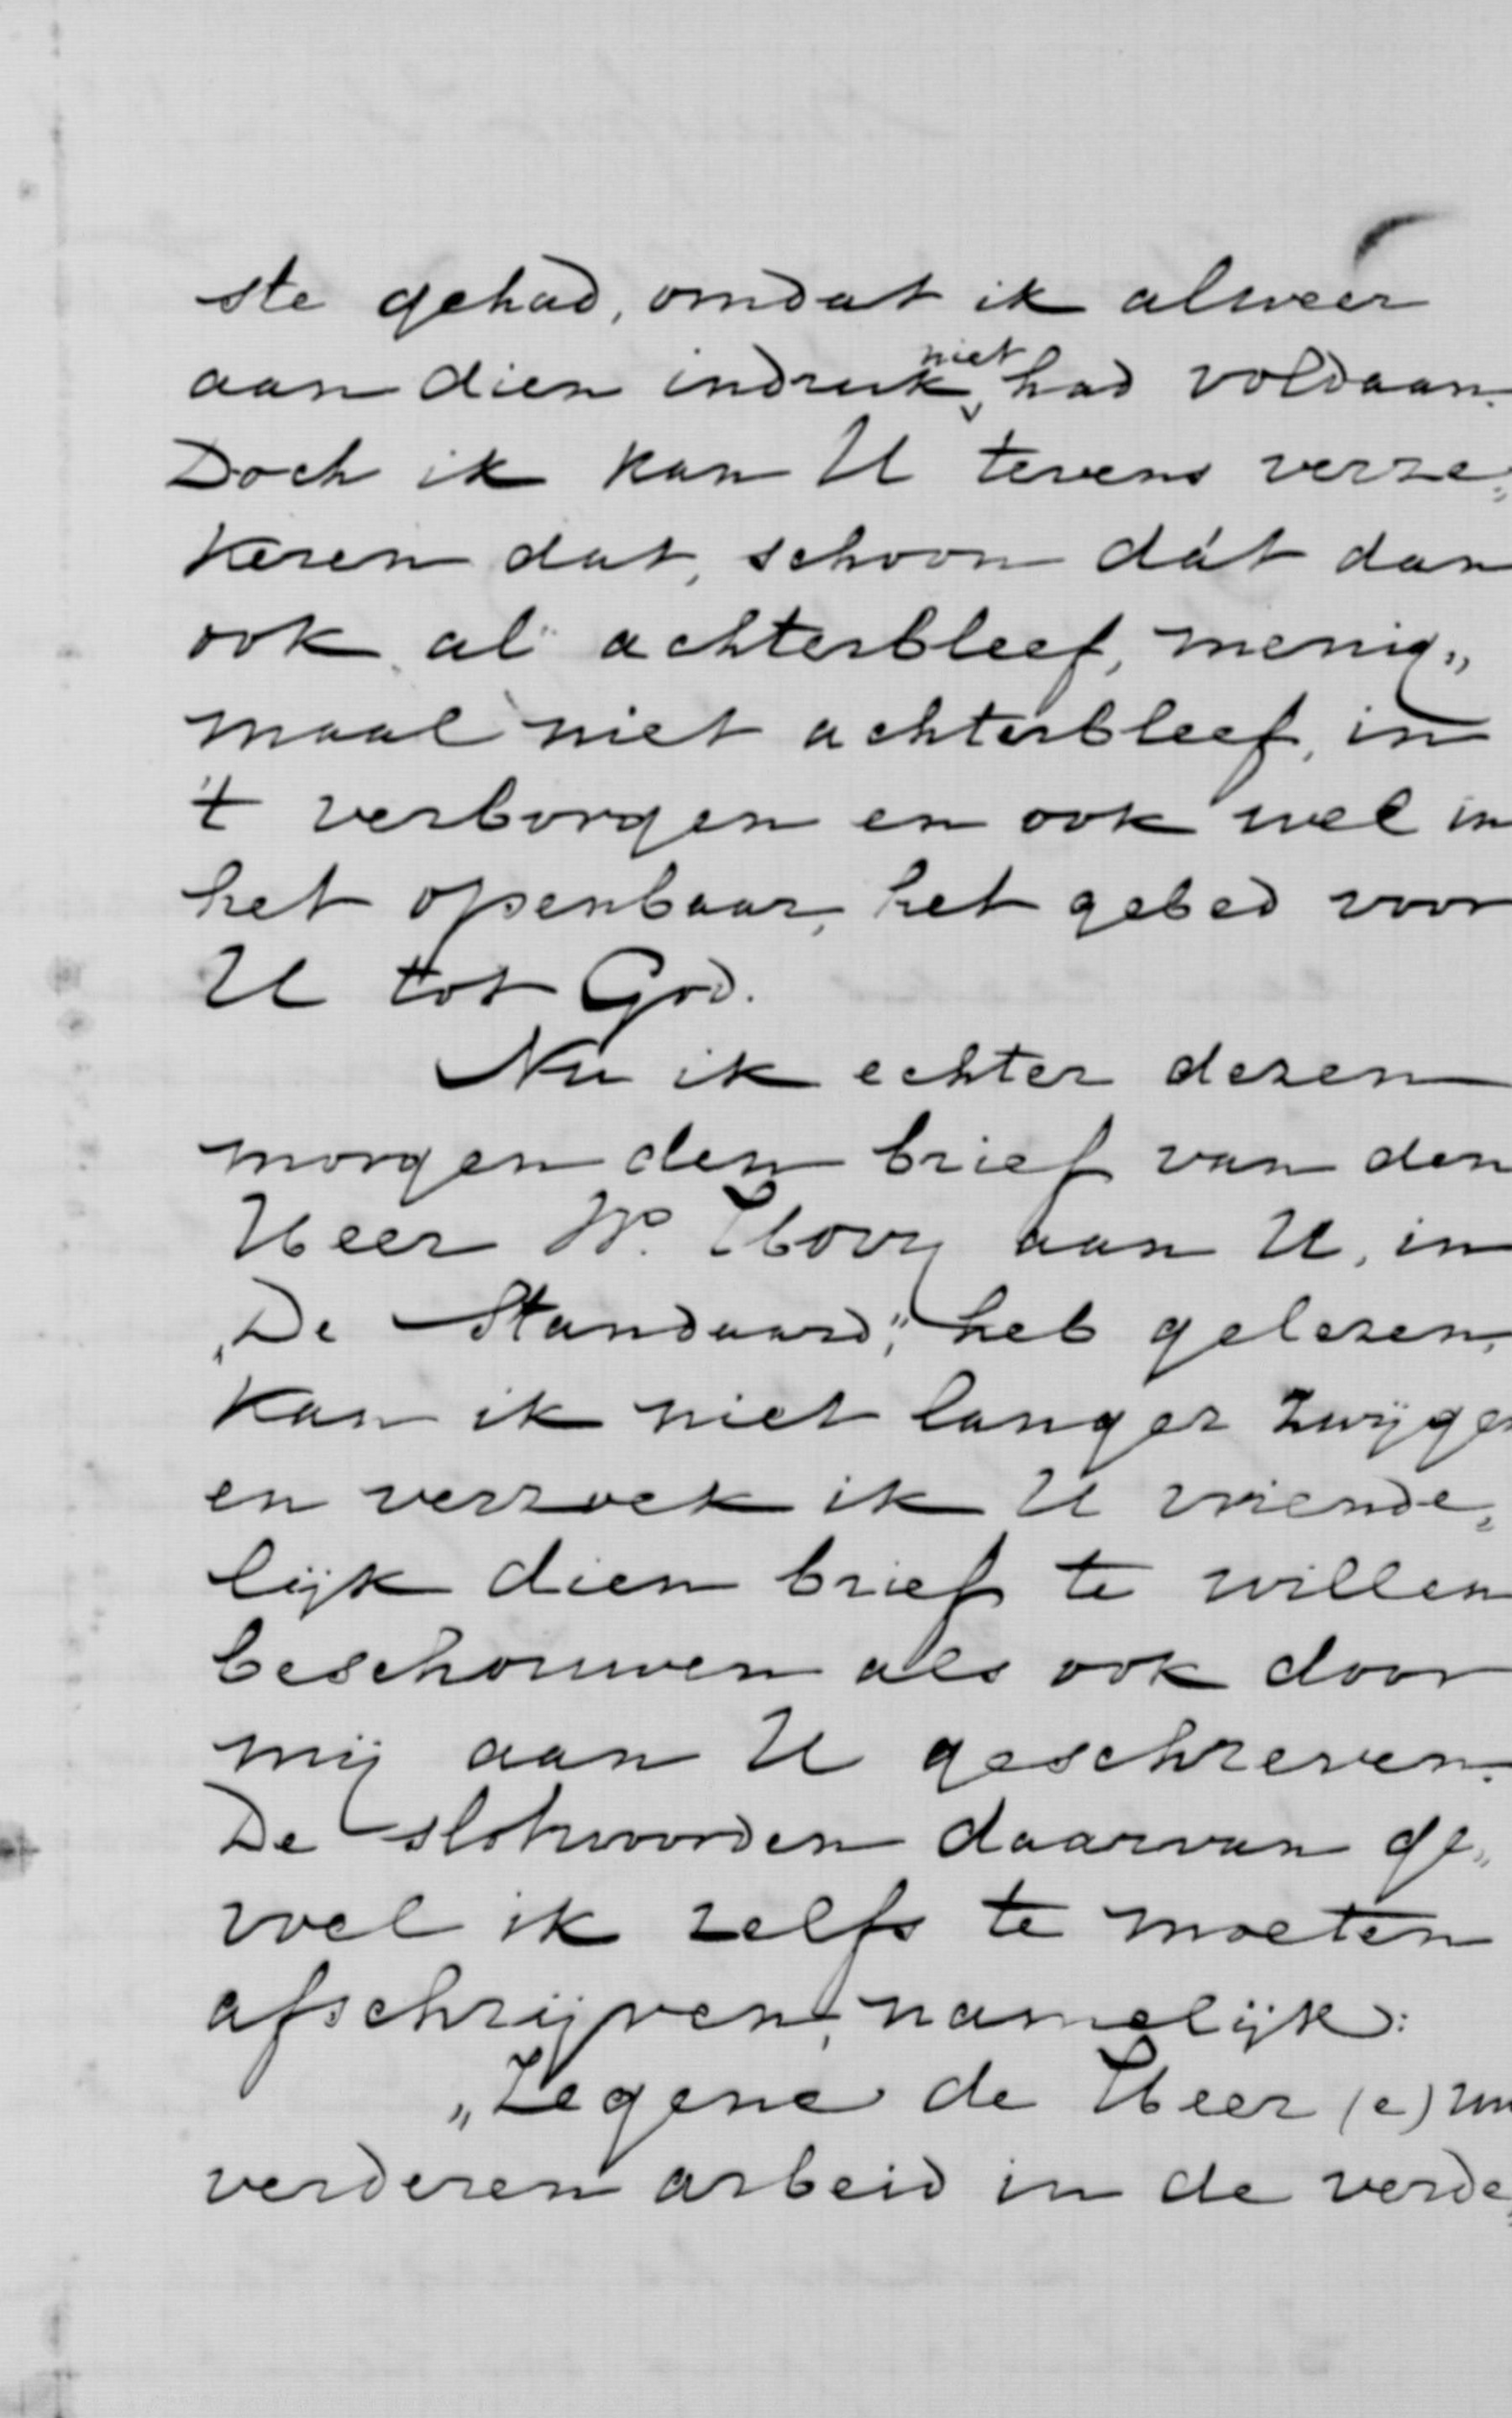 ste gehad, omdat ik alweer
aan dien indruk niet had voldaan.
Doch ik kan U tevens verze„
keren dat, schoon dát dan
ook al achterbleef, menig„
maal niet achterbleef, in
't verborgen en ook wel in
het openbaar, het gebed voor
U tot God.
Nu ik echter dezen
morgen den brief van den
Heer W. Hovy aan U, in
„De Standaard", heb gelezen,
kan ik niet langer zwijgen
en verzoek ik U vriende„
lijk dien brief te willen
beschouwen als ook door
mij aan U geschreven.
De slotwoorden daarvan ge„
voel ik zelfs te moeten
afschrijven, namelijk:
„Zegene de Heer (e) Uw
verderen arbeid in de verde„